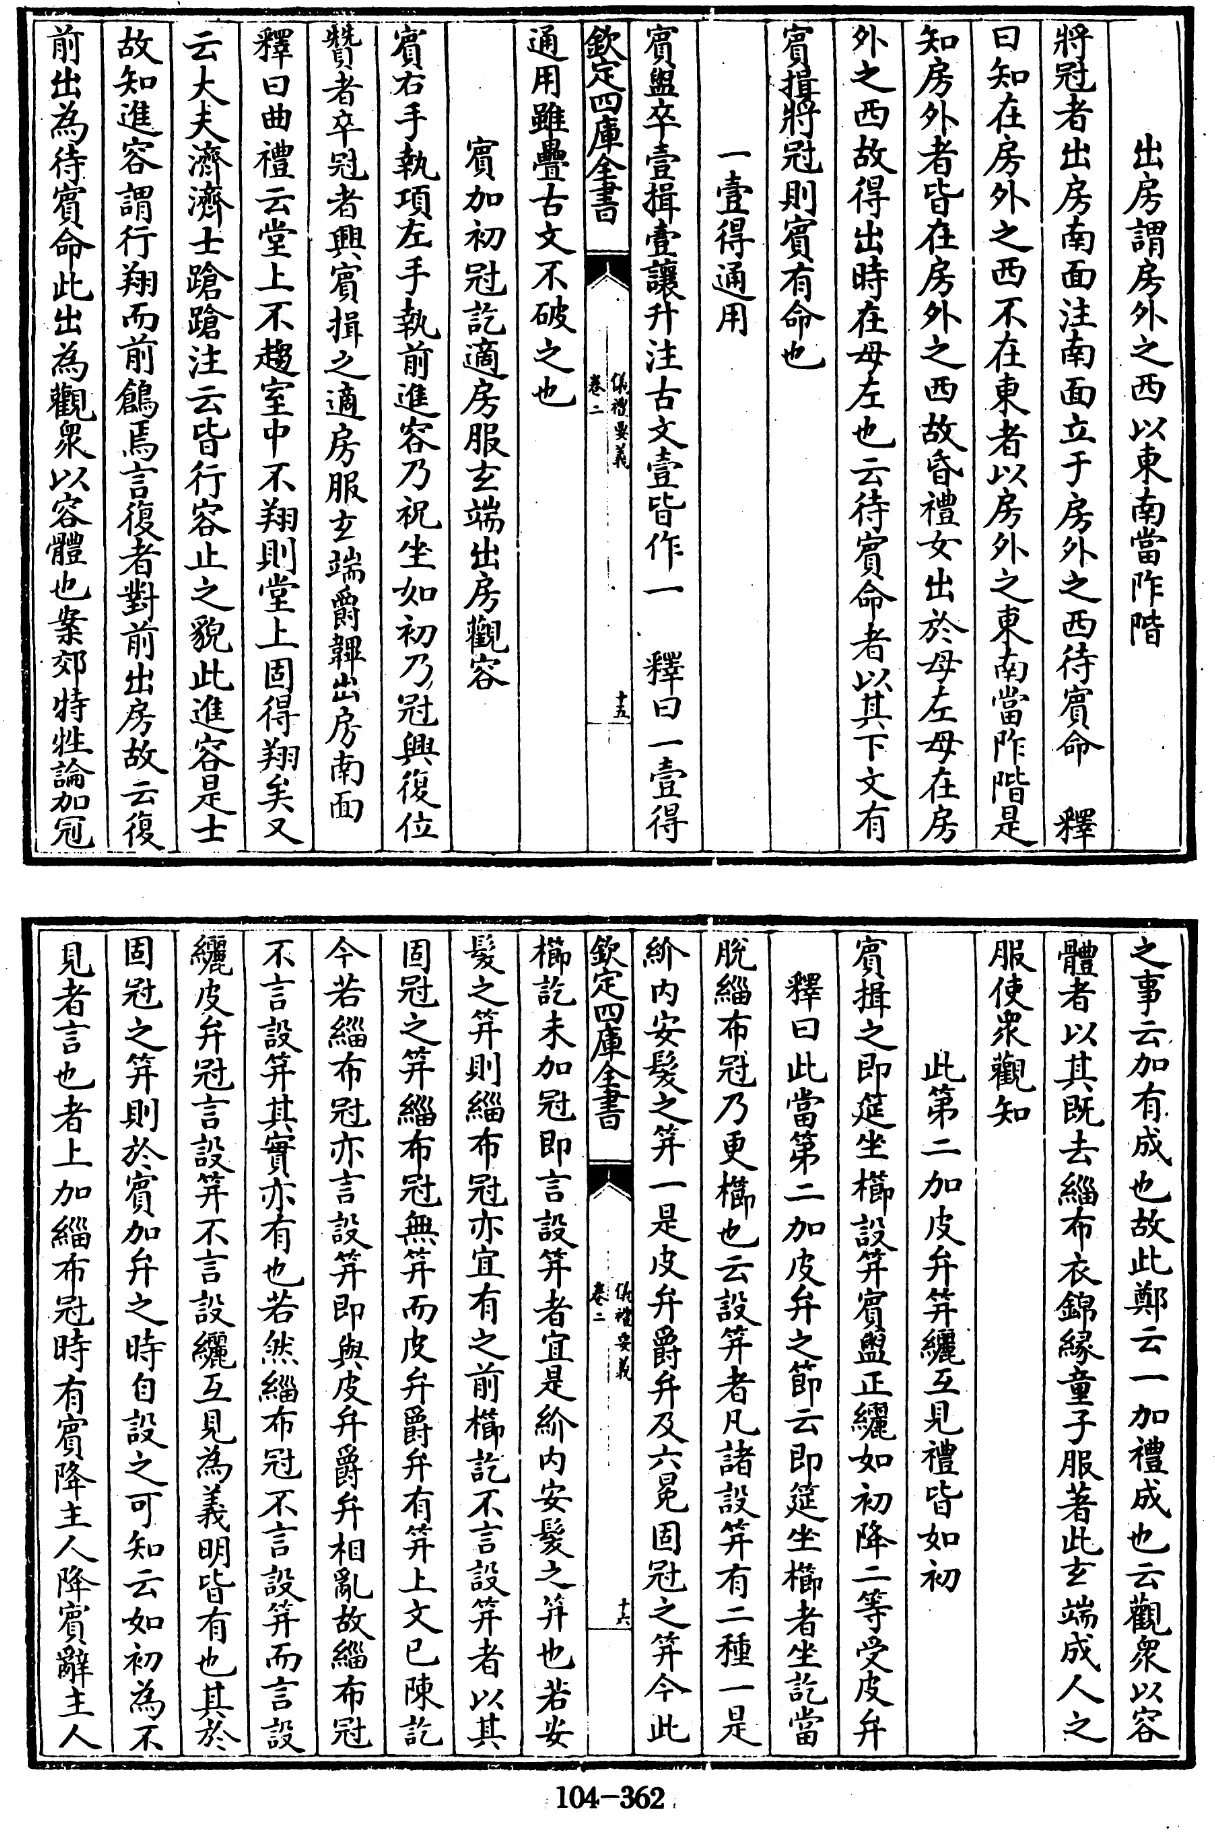 出房謂房外之西以東南當阼階
將冠者出房南面注南面立于房外之西待賓命　釋
曰知在房外之西不在東者以房外之東南當阼階是
知房外者皆在房外之西故昏禮女出於母左母在房
外之西故得出時在母左也云待賓命者以其下文有
賓揖將冠則賓有命也
一壹得通用
賓盥卒壹揖壹讓升注古文壹皆作一　釋曰一壹得
欽定四庫全書
儀禮要義
卷二
十五
通用雖疊古文不破之也
賓加初冠訖適房服玄端出房觀容
賓右手執項左手執前進容乃祝坐如初乃冠興復位
贊者卒冠者興賓揖之適房服玄端爵韠出房南面
釋曰曲禮云堂上不趨室中不翔則堂上固得翔矣又
云大夫濟濟士蹌蹌注云皆行容止之貌此進容是士
故知進容謂行翔而前鶬焉言復者對前出房故云復
前出為待賓命此出為觀衆以容體也案郊特牲論加冠
之事云加有成也故此鄭云一加禮成也云觀衆以容
體者以其既去緇布衣錦緣童子服著此玄端成人之
服使衆觀知
此第二加皮弁笄纚互見禮皆如初
賓揖之即筵坐櫛設笄賓盥正纚如初降二等受皮弁
釋曰此當第二加皮弁之節云即筵坐櫛者坐訖當
脫緇布冠乃更櫛也云設笄者凡諸設笄有二種一是
紒内安髮之笄一是皮弁爵弁及六冕固冠之笄今此
欽定四庫全書
儀禮要義
卷二
十六
櫛訖未加冠即言設笄者宜是紒内安髮之笄也若安
髮之笄則緇布冠亦宜有之前櫛訖不言設笄者以其
固冠之笄緇布冠無笄而皮弁爵弁有笄上文已陳訖
今若緇布冠亦言設笄即與皮弁爵弁相亂故緇布冠
不言設笄其實亦有也若然緇布冠不言設笄而言設
纚皮弁冠言設笄不言設纚互見為義明皆有也其於
固冠之笄則於賓加弁之時自設之可知云如初為不
見者言也者上加緇布冠時有賓降主人降賓辭主人
104-362